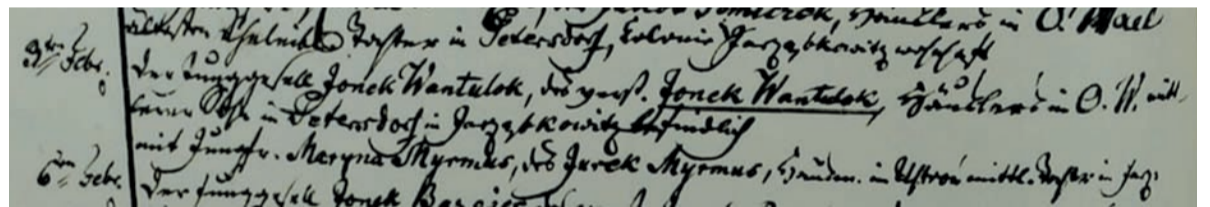 ältesten Eheleibl. Tochter in Petersdorf, Colonie Jarząbkowitz wohnhaft
3ten Febr. Der Junggesell Jonek Wantulok, des verst. Jonek Wantulok, Häuslers in O. W. mitt-
lerer Sohn in Petersdorf in Jarząbkowitz befindlich
mit Jungfr. Maryna Myrmus, des Jurek Myrmus, in Ustroń mittl. Tochter in Jarz.
6ten Febr. Der Junggesell Jonek